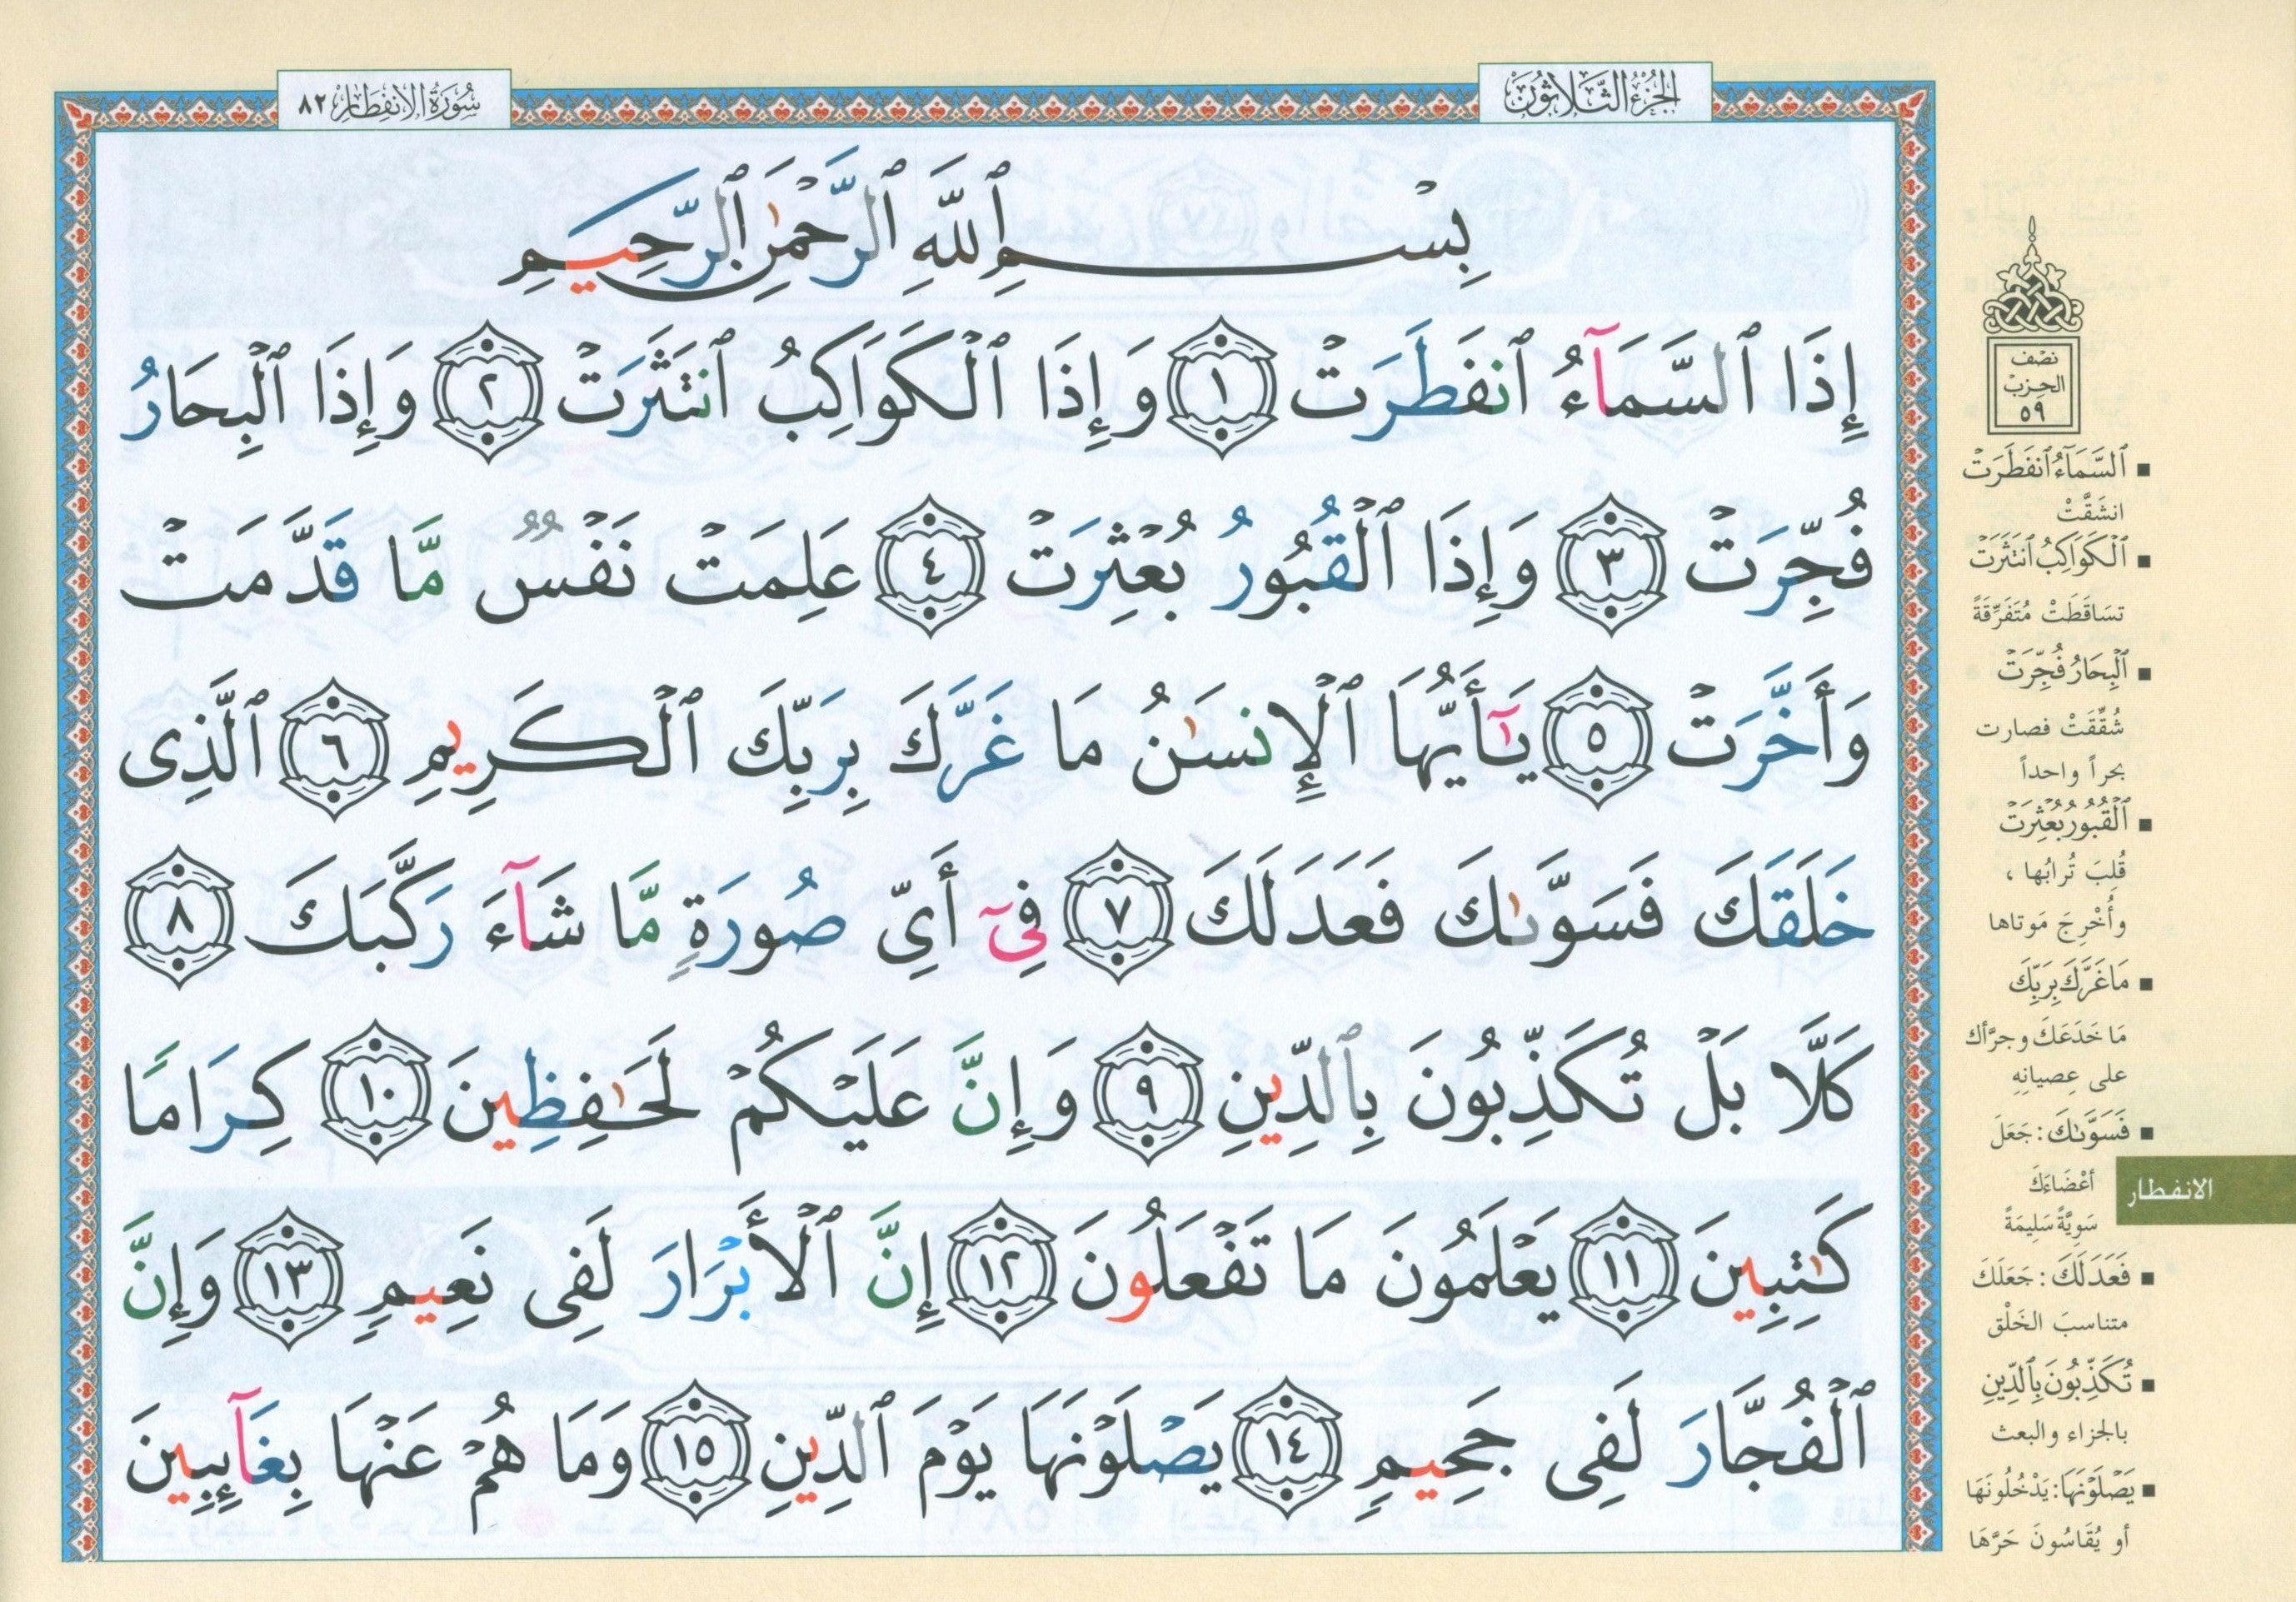 الجزء الثلاثون
سورة الانفطار ٨٢
بِسْمِ ٱللَّهِ ٱلرَّحْمَٰنِ ٱلرَّحِيمِ
إِذَا ٱلسَّمَآءُ ٱنفَطَرَتْ ١ وَإِذَا ٱلْكَوَاكِبُ ٱنتَثَرَتْ ٢ وَإِذَا ٱلْبِحَارُ
فُجِّرَتْ ٣ وَإِذَا ٱلْقُبُورُ بُعْثِرَتْ ٤ عَلِمَتْ نَفْسٌ مَّا قَدَّمَتْ
وَأَخَّرَتْ ٥ يَٰٓأَيُّهَا ٱلْإِنسَٰنُ مَا غَرَّكَ بِرَبِّكَ ٱلْكَرِيمِ ٦ ٱلَّذِى
خَلَقَكَ فَسَوَّىٰكَ فَعَدَلَكَ ٧ فِىٓ أَىِّ صُورَةٍ مَّا شَآءَ رَكَّبَكَ ٨
كَلَّا بَلْ تُكَذِّبُونَ بِٱلدِّينِ ٩ وَإِنَّ عَلَيْكُمْ لَحَٰفِظِينَ ١٠ كِرَامًا
كَٰتِبِينَ ١١ يَعْلَمُونَ مَا تَفْعَلُونَ ١٢ إِنَّ ٱلْأَبْرَارَ لَفِى نَعِيمٍ ١٣ وَإِنَّ
ٱلْفُجَّارَ لَفِى جَحِيمٍ ١٤ يَصْلَوْنَهَا يَوْمَ ٱلدِّينِ ١٥ وَمَا هُمْ عَنْهَا بِغَآئِبِينَ
نصف
الحزب
٥٩
■ ٱلسَّمَآءُ ٱنفَطَرَتْ
انشَقَّتْ
■ ٱلْكَوَاكِبُ ٱنتَثَرَتْ
تسَاقَطَتْ مُتَفَرِّقَةً
■ ٱلْبِحَارُ فُجِّرَتْ
شُقِّقَتْ فصارت
بحراً واحداً
■ ٱلْقُبُورُ بُعْثِرَتْ
قُلِبَ تُرابُها ،
وأُخْرِجَ مَوتاها
■ مَا غَرَّكَ بِرَبِّكَ
مَا خَدَعَكَ وجرَّأك
على عِصيانِهِ
■ فَسَوَّىٰكَ : جَعَلَ
أعْضَاءَكَ
سَوِيَّةً سَلِيمَةً
الانفطار
■ فَعَدَلَكَ : جَعَلَكَ
متناسبَ الخَلْق
■ تُكَذِّبُونَ بِٱلدِّينِ
بالجزاء والبعث
■ يَصْلَوْنَهَا : يَدْخُلُونَهَا
أو يُقَاسُونَ حَرَّهَا